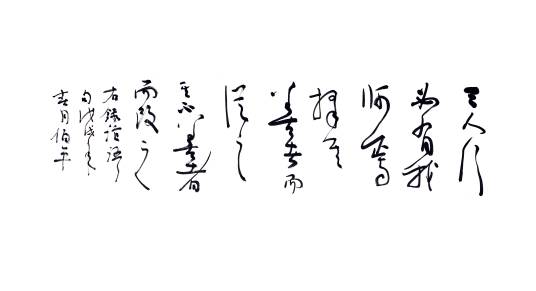 三人行
必有我
師焉
擇其
善者而
從之
其不善者
而改之
右錄論語
句戊戌
春月伯平